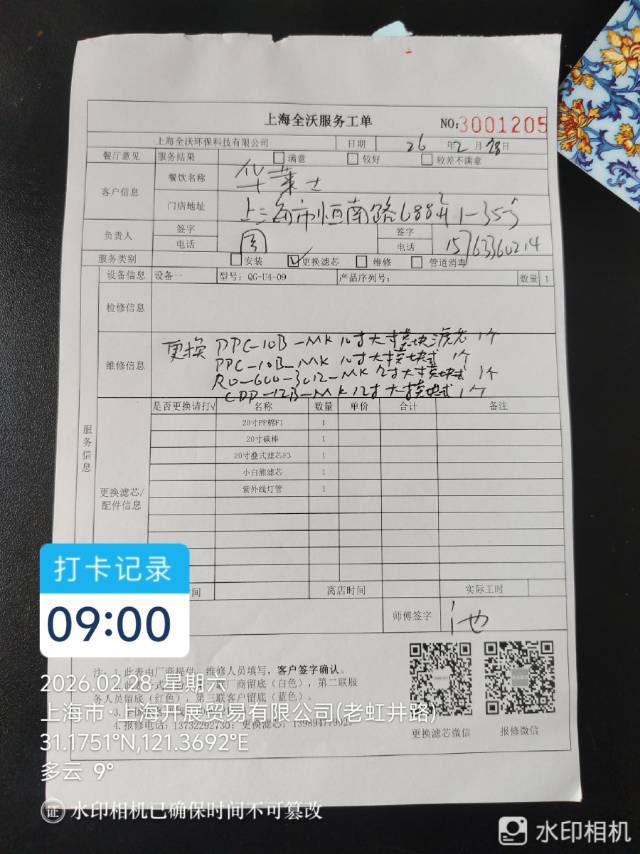 上海全沃服务工单
NO:3001205
上海全沃环保科技有限公司 日期 26年2月28日
餐厅意见 服务结果 满意 较好 较差不满意
客户信息 餐饮名称 华莱士
门店地址 上海市恒南路688弄1-35号
负责人 签字 签字
电话 电话 15763360214
服务类别 安装 更换滤芯 维修 管道消毒
设备信息 设备一 型号: QG-U4-09 产品序列号: 数量 1
检修信息
维修信息
更换 PPC-10B-MK 10寸大模块 1个
PPC-10B-MK 10寸大模块 1个
RO-600-3012-MK 12寸大模块 1个
12B-MK 12寸大模块 1个
服务信息
更换滤芯/配件信息
是否更换请打√ 名称 数量 单价 合计 备注
20寸PP棉F1 1
20寸碳棒 1
20寸叠式滤芯F3 1
小白熊滤芯 1
紫外线灯管 1
间 离店时间 实际工时
师傅签字
注: 1.此表由厂商提供, 维修人员填写, 客户签字确认。
商留底(白色), 第二联服
务人员留底(红色), 第三联客户留底(蓝色)。
4.报修电话: 13732292730; 更换滤芯:
更换滤芯微信 报修微信
打卡记录
09:00
2026.02.28 星期六
上海市·上海开展贸易有限公司(老虹井路)
31.1751°N,121.3692°E
多云 9°
证 水印相机已确保时间不可篡改
水印相机